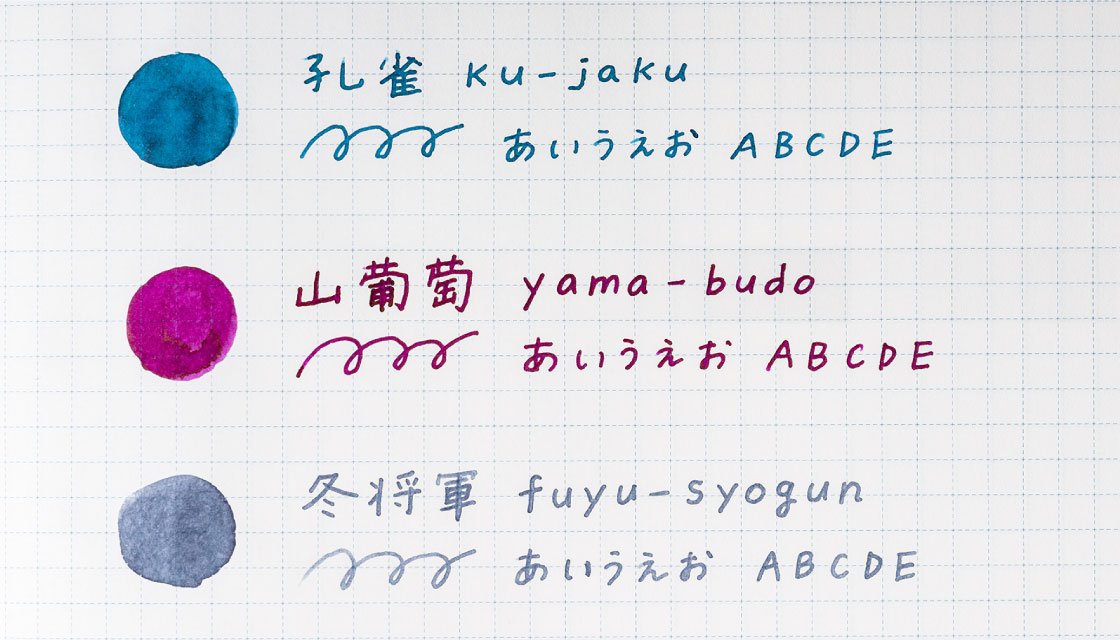 孔雀 ku-jaku
あいうえお ABCDE
山葡萄 yama-budo
あいうえお ABCDE
冬将軍 fuyu-syogun
あいうえお ABCDE